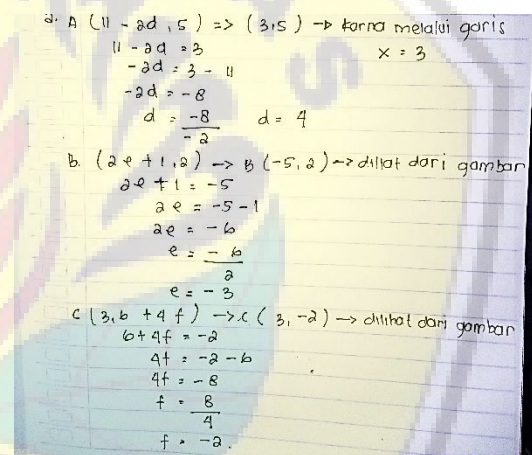 a. A (11 - 2d , 5 ) => ( 3,5 ) -> karna melalui garis
11 - 2d = 3 x = 3
- 2d = 3 - 11
- 2d = - 8
d = -8 / -2 d = 4
b. ( 2e + 1 , 2 ) -> B (-5, 2 ) -> dilihat dari gambar
2e + 1 = -5
2e = -5 -1
2e = -6
e = - 6 / 2
e = - 3
C ( 3, 6 + 4 f ) -> C ( 3, -2 ) -> dilihat dari gambar
6 + 4f = -2
4f = -2 - 6
4f = - 8
f = 8 / 4
f = -2.